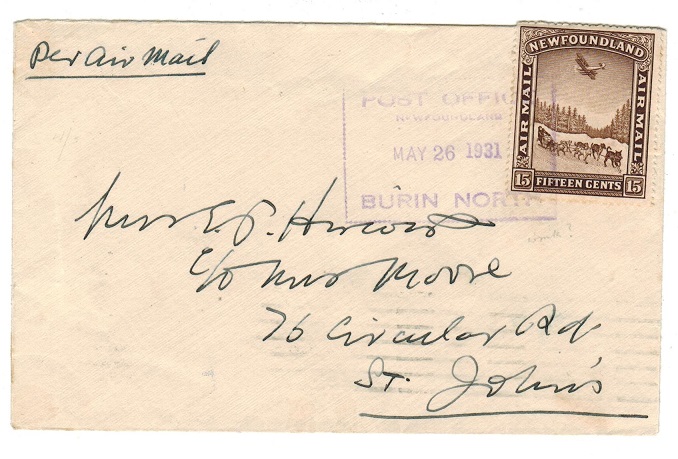 Per Air Mail
NEWFOUNDLAND
AIR MAIL
AIR MAIL
15 FIFTEEN CENTS 15
POST OFFICE
NEWFOUNDLAND
MAY 26 1931
BURIN NORTH
E. P.
c/o Mrs Moore
76 Circular Rd.
St. John's